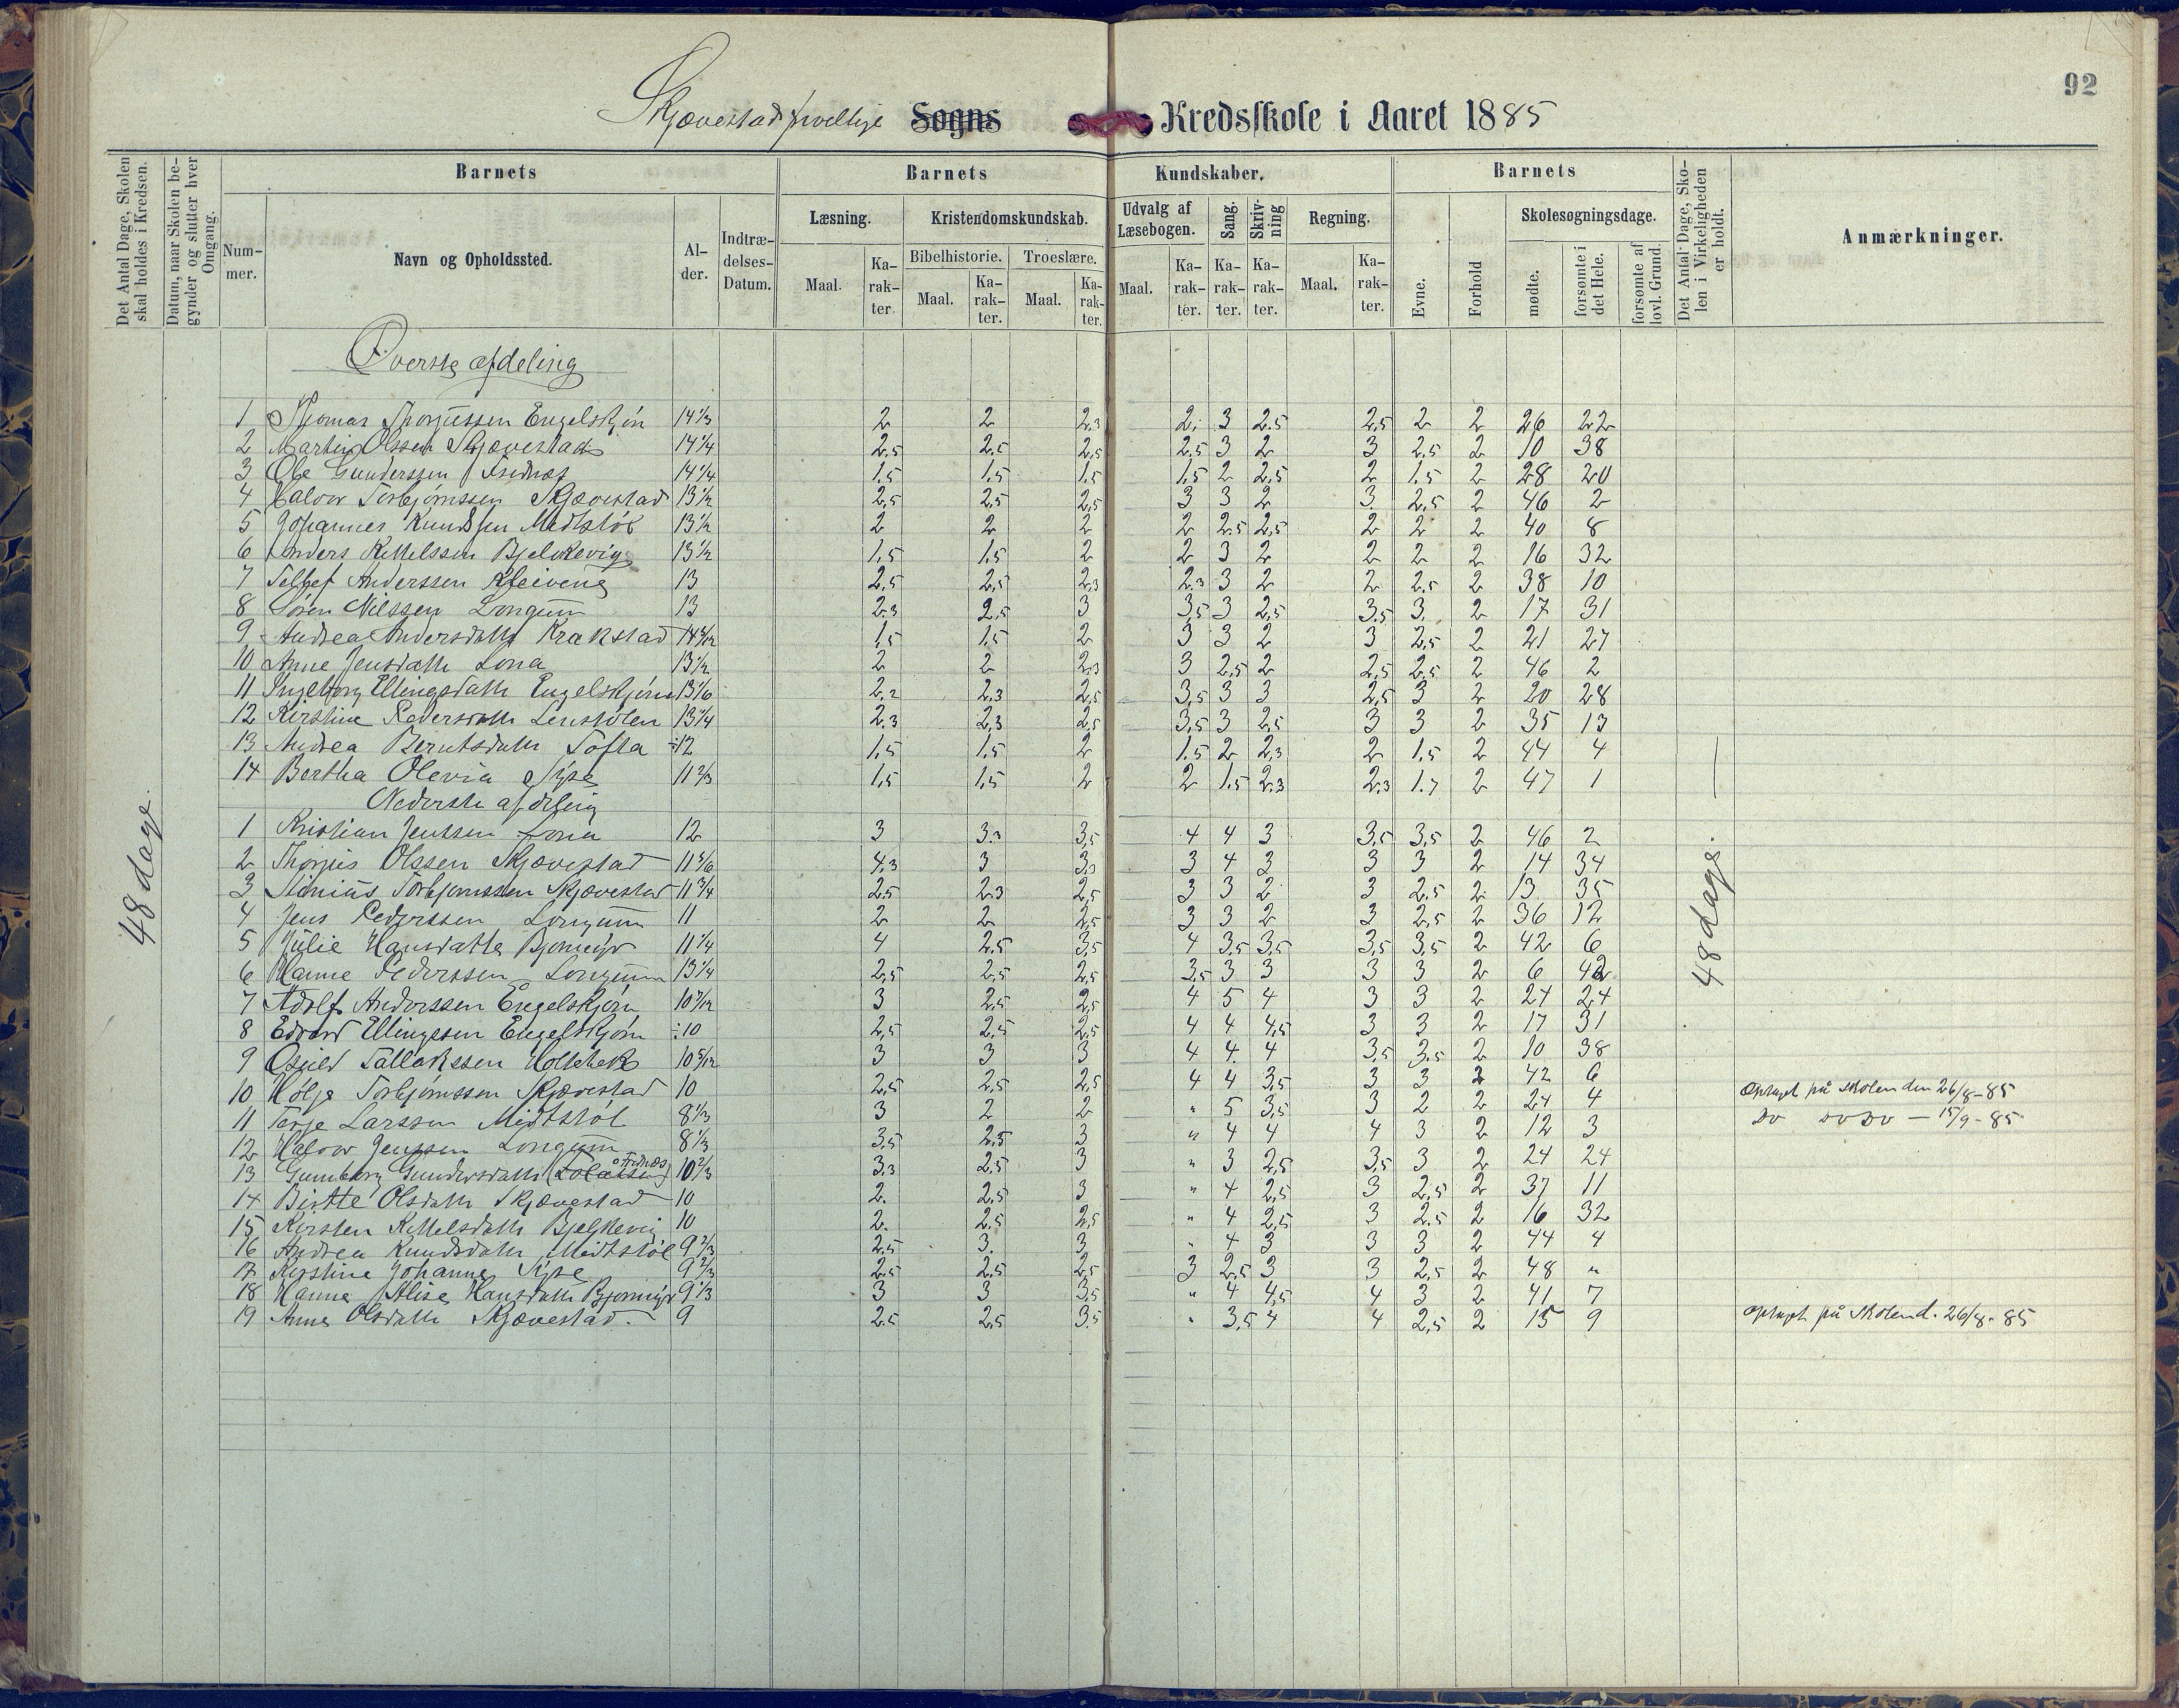 92
Skjævestad frivillige Sogns Kredsskole i Aaret 1885
Det Antal Dage, Skolen skal holdes i Kredsen.
Datum, naar Skolen begynder og slutter hver Omgang.
Barnets
Barnets
Kundskaber.
Barnets
Det Antal Dage, Skolen i Virkeligheden er holdt.
Anmærkninger.
Nummer.
Navn og Opholdssted.
Alder.
Indtrædelses-Datum.
Læsning.
Kristendomskundskab.
Udvalg af Læsebogen.
Sang.
Skrivning
Regning.
Evne.
Forhold
Skolesøgningsdage.
Bibelhistorie.
Troeslære.
Maal.
Karakter.
Maal.
Karakter.
Maal.
Karakter.
Maal.
Karakter.
Karakter.
Karakter.
Maal.
Karakter.
mødte.
forsømte i det Hele.
forsømte af lovl. Grund.
Øverste afdeling
48 dage.
48 dage.
1 Thomas Thorjussen Engelskjøn 14 1/3 2 2 2.3 2. 3 2.5 2,5 2 2 26 22
2 Martin Olssen Skjævestad 14 1/4 2,5 2,5 2,5 2,5 3 2 3 2,5 2 10 38
3 Ole Gunderssen 14 1/4 1,5 1,5 1,5 1,5 2 2,5 2 1.5 2 28 20
4 Halvor Torbjørnssen Skjævestad 13 1/2 2,5 2,5 2,5 3 3 2 3 2,5 2 46 2
5 Johannes Knudssen Midtstøl 13 1/2 2 2 2 2 2.5 2,5 2 2 2 40 8
6 Anders Kittelssen Bjelkevig 13 1/2 1,5 1,5 2 2 3 2 2 2 2 16 32
7 Tellef Anderssen Kleivene 13 2,5 2,5 2,3 2.3 3 2 2 2.5 2 38 10
8 Søren Nilssen Longum 13 2.3 2,5 3 3,5 3 2,5 3.5 3. 2 17 31
9 Andrea Andersdatter Krakstad 1,5 1,5 2 3 3 2 3 2,5 2 21 27
10 Anne Jensdatter Lona 13 1/2 2 2 2.3 3 2,5 2 2,5 2,5 2 46 2
11 Ingeborg Ellingsdatter Engelskjøn 13 1/6 2.2 2,3 2,5 3,5 3 3 2,5 3 2 20 28
12 Kirstine Pedersdatter Lenstølen 13 1/4 2.3 2,3 2,5 3,5 3 2,5 3 3 2 35 13
13 Andrea Berntsdatter Tofta ÷12 1,5 1,5 2 1.5 2 2,3 2 1,5 2 44 4
14 Bertha Olevia Sype 11 2/3 1,5 1,5 2 2 1.5 2.3 2.3 1.7 2 47 1
Nederste afdeling
1 Kristian Jenssen Lona 12 3 3.3 3,5 4 4 3 3,5 3,5 2 46 2
2 Thorjus Olssen Skjævestad 11 5/6 4.3 3 3,3 3 4 3 3 3 2 14 34
3 Torbjørnssen Skjævestad 11 3/4 2.5 2.3 2,5 3 3 2 3 2,5 2. 13 35
4 Jens Pederssen Longum 11 2 2 2,5 3 3 2 3 2,5 2 36 12
5 Julie Hansdatter Bjormyr 11 1/4 4 2.5 3,5 4 3.5 3,5 3,5 3,5 2 42 6
6 Hanne Pederssen Longum 13 1/4 2,5 2,5 2,5 3,5 3 3 3 3 2 6 42
7 Adolf Anderssen Engelskjøn 10 7/12 3 2.5 2,5 4 5 4 3 3 2 24 24
8 Edvard Ellingssen Engelskjøn ÷10 2,5 2,5 2,5 4 4 4,5 3 3 2 17 31
9 Osuld Tallakssen Holtebek 10 5/12 3 3 3 4 4 4 3,5 3,5 2 10 38
10 Hølje Torbjørnssen Skjævestad 10 2,5 2,5 2,5 4 4 3,5 3 3 2 42 6
11 Terje Larssen Midtstøl 8 1/3 3 2 2 " 5 3,5 3 2 2 24 4 Optaget på skolen den 26/8-85
12 Halvor Jenssen Longum 8 1/3 3,5 2.5 3 " 4 4 4 3 2 12 3 Do do do — 15/9-85
13 Gunnborg Gundersdatter 10 2/3 3,3 2,5 3 " 3 2,5 3,5 3 2 24 24
14 Birtte Olsdatter Skjævestad 10 2. 2.5 3 " 4 2,5 3 2,5 2 37 11
15 Kirsten Kittelsdatter Bjelkevig 10 2. 2.5 2,5 " 4 2,5 3 2.5 2 16 32
16 Andrea Knudsdatter Midtstøl 9 2/3 2.5 3. 3 " 4 3 3 3 2 44 4
17 Kirstine Johanne Sype 9 2/3 2.5 2.5 2,5 3 2,5 3 3 2,5 2 48 "
18 Hanne Alise Hansdatter Bjormyr 9 1/3 3 3 3,5 " 4 4,5 4 3 2 41 7
19 Anne Olsdatter Skjævestad 9 2.5 2,5 3,5 " 3,5 4 4 2,5 2 15 9 Optaget på skolen d. 26/8-85